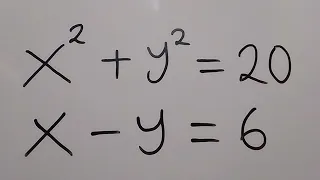 x² + y² = 20
x - y = 6